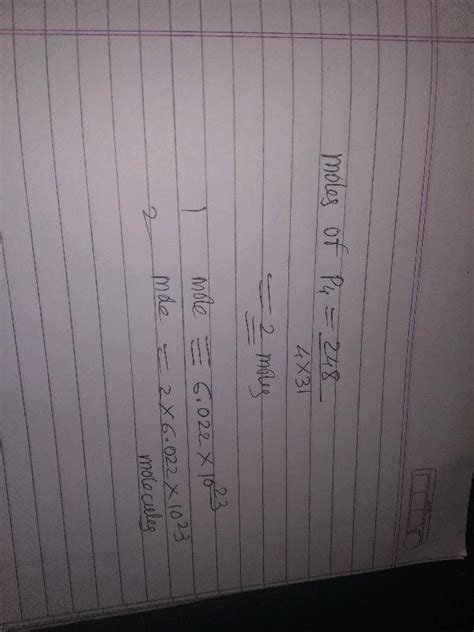 moles of P4 = 248
4×31
= 2 moles
1 mole = 6.022 × 10^23
2 mole = 2 × 6.022 × 10^23
molecules